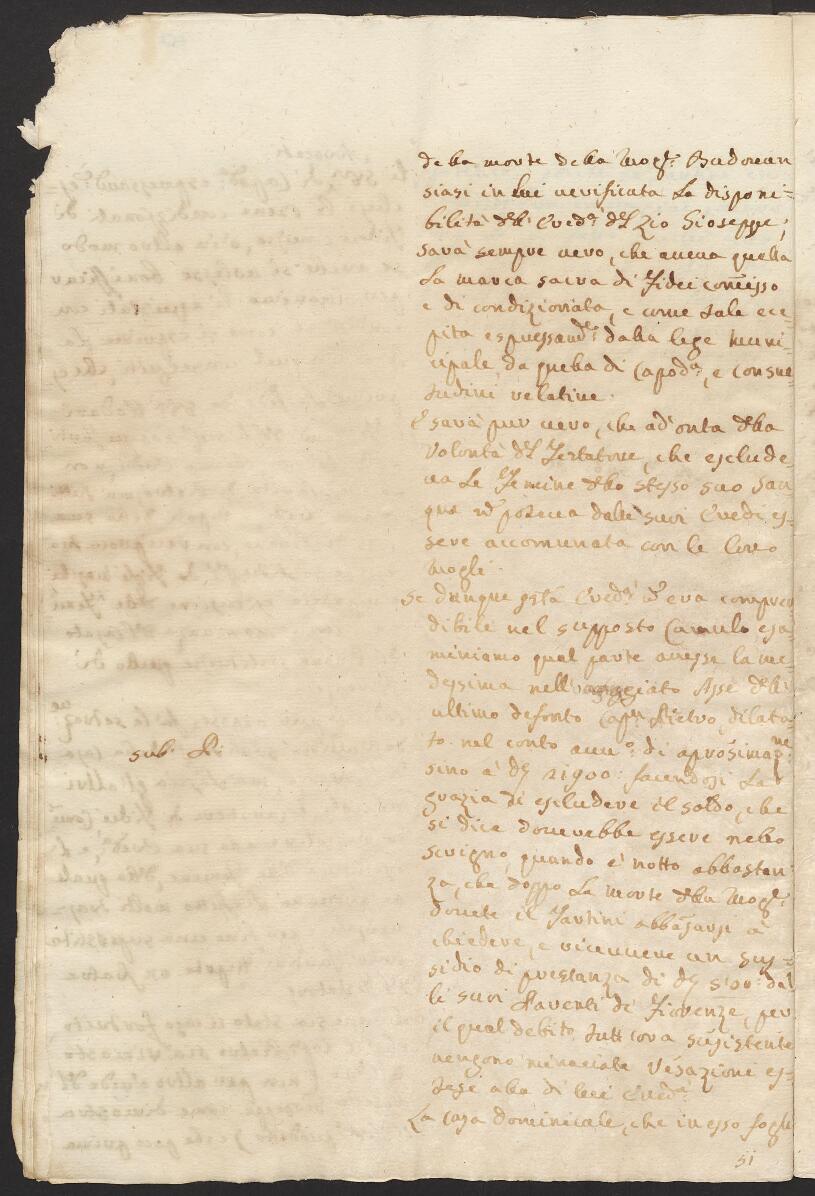 della morte della Mogl.e Badouan
siasi in lui verificata la disponi-
bilità dell' Ered.à del Zio Gioseppe,
sarà sempre vero, che aueua quella
la marca sacra di Fideicom̃isso
e di condizionata, e come tale ece-
pita espressam.te dalla lege Muni-
cipale, da quella di Capod.a, e consue-
tudini relatiue.
E sarà pur uero, che ad' onta della
Volontà del Testatore, che esclude-
ua le Femine dello stesso suo San-
gue, poteua dalli suoi Eredi es-
sere accomunata con le loro
Mogli.
Se dunque Ered.à era compren
dibile nel supposto Cumulo esa
miniamo qual parte auesse la me-
dessima nell' Asse dell'
ultimo defonto Cap.n Pietro, dilata-
to nel conto di aprosimam.ne
sino a d.ti 21900: facendosi la
grazia di escludere il soldo, che
si dice douerebbe essere nello
scrigno, quando è notto abbastan-
za, che doppo la morte della Mogl.e
douete il Tartini abbassarsi à
chiedere, e riceuuere un sus-
sidio di prestanza di d.ti 500: dal
li suoi Parenti di Fiorenze, per
il qual debito tutt'ora susistente
uengono minaciate Vesazione es-
tese alla di lui Ered.à
La casa dominicale, che in esso fogli
si
sub. P: